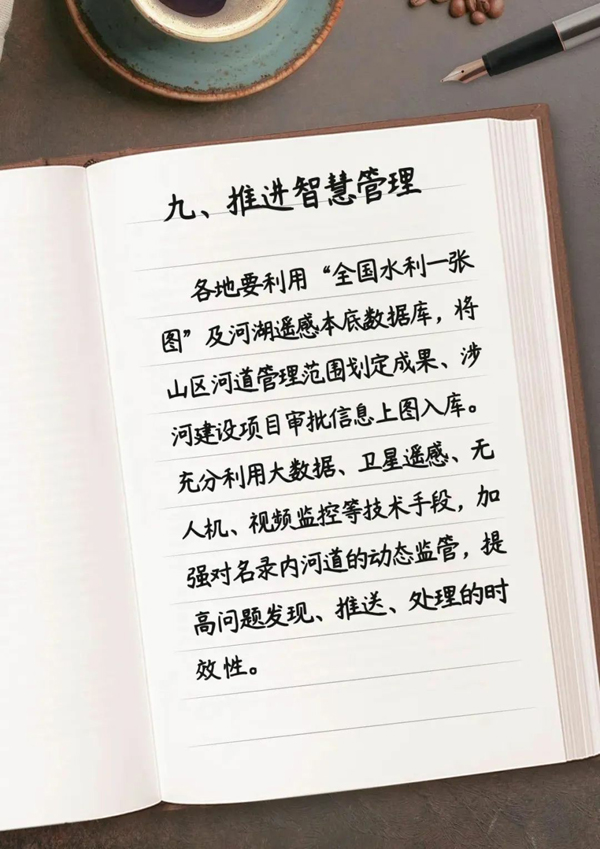 九、推进智慧管理
各地要利用“全国水利一张
图”及河湖遥感本底数据库，将
山区河道管理范围划定成果、涉
河建设项目审批信息上图入库。
充分利用大数据、卫星遥感、无
人机、视频监控等技术手段，加
强对名录内河道的动态监管，提
高问题发现、推送、处理的时
效性。